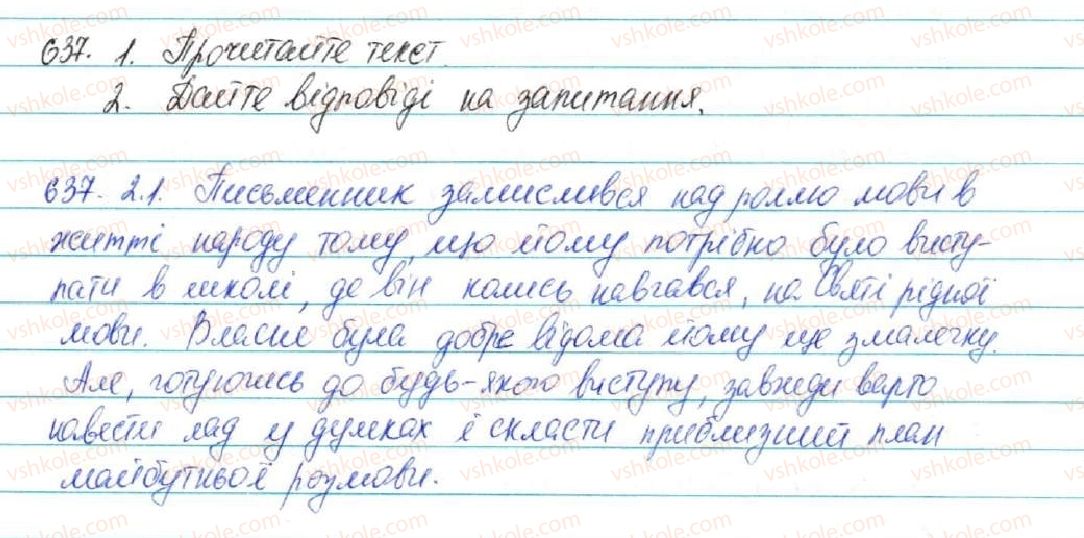 637. 1. Прочитайте текст.
2. Дайте відповіді на запитання.
637. 2.1. Письменник замислився над роллю мови в
житті народу тому, що йому потрібно було висту-
пати в школі, де він колись навчався, на Святі рідної
мови. Власне була добре відома йому ще змалечку.
Але, готуючись до будь-якого виступу, завжди варто
навести лад у думках і скласти приблизний план
майбутньої розмови.